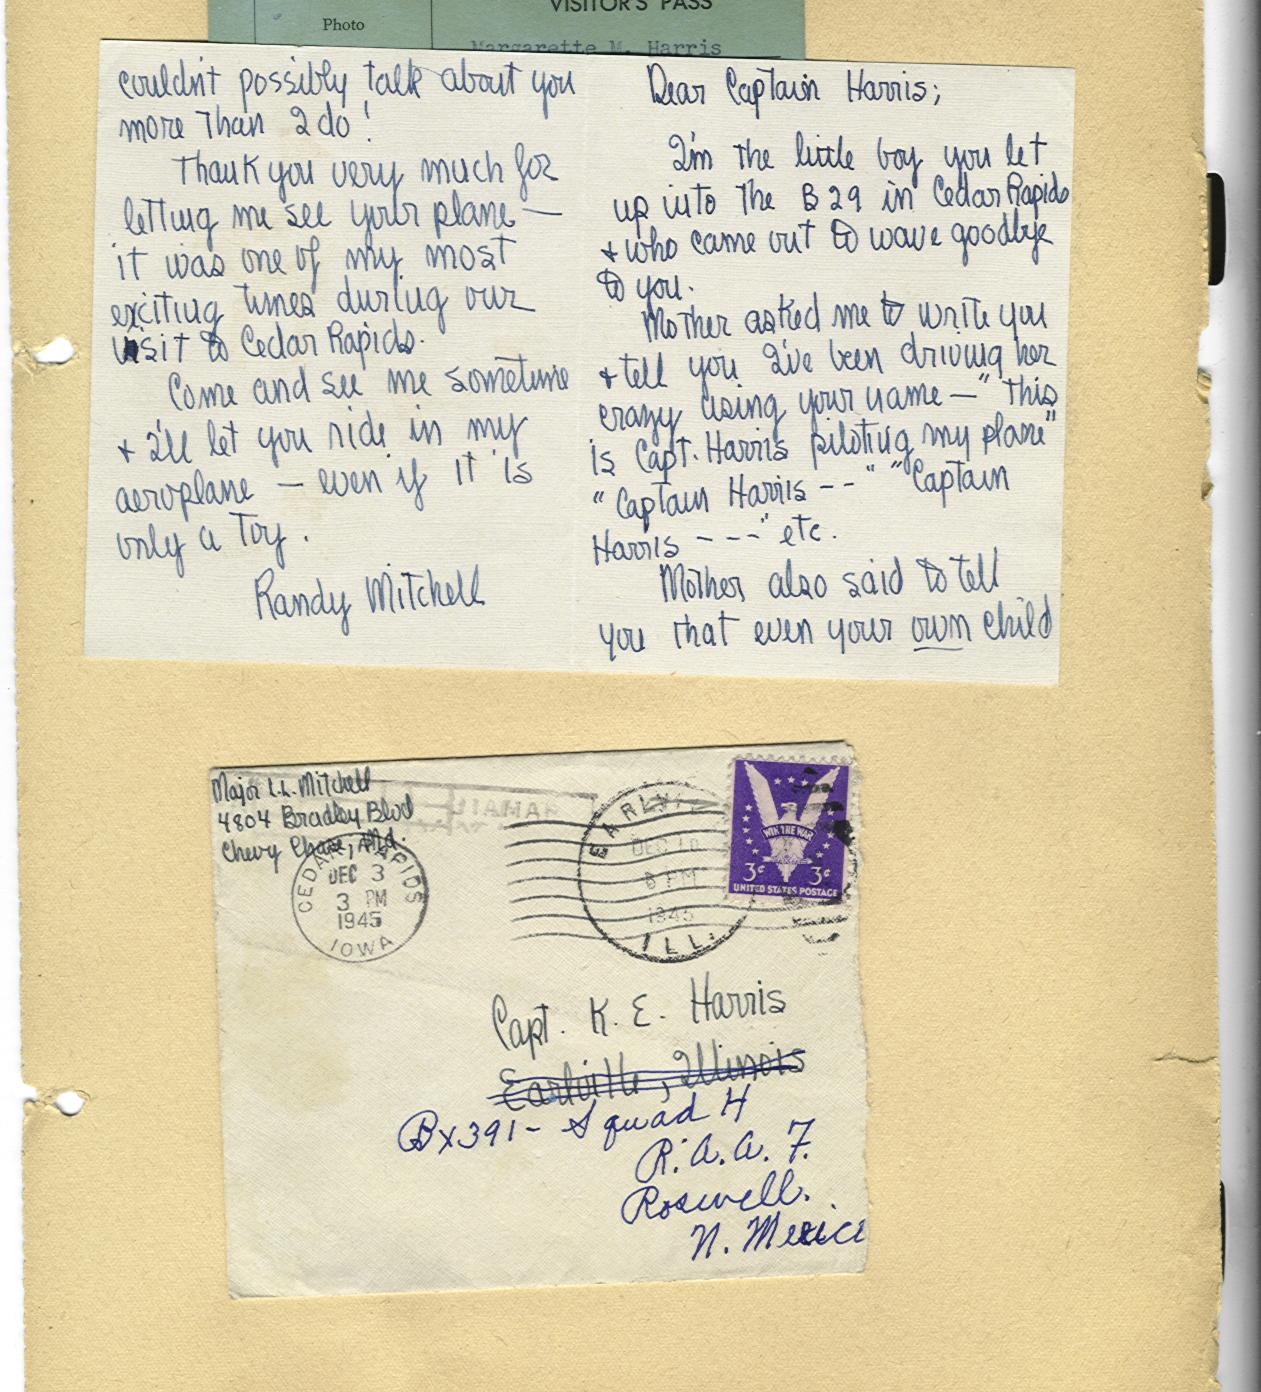 VISITOR'S PASS
Photo
Margarette M. Harris
Dear Captain Harris;
I'm the little boy you let
up into the B 29 in Cedar Rapids
+ who came out to wave goodbye
to you.
Mother asked me to write you
+ tell you I've been driving her
crazy using your name — "This
is Capt. Harris piloting my plane"
"Captain Harris - -" "Captain
Harris - - -" etc.
Mother also said to tell
you that even your own child
couldn't possibly talk about you
more than I do!
Thank you very much for
letting me see your plane —
it was one of my most
exciting times during our
visit to Cedar Rapids.
Come and see me sometime
+ I'll let you ride in my
aeroplane — even if it is
only a toy.
Randy Mitchell
Major L.L. Mitchell
4804 Bradley Blvd
Chevy Chase, Md.
CEDAR RAPIDS
DEC 3
3 PM
1945
IOWA
DEC 10
6 PM
1945
ILL.
WIN THE WAR
3¢ 3¢
UNITED STATES POSTAGE
Capt. K. E. Harris
Earlville, Illinois
Bx 391 - Squad H
R. A. A. F.
Roswell.
N. Mexico